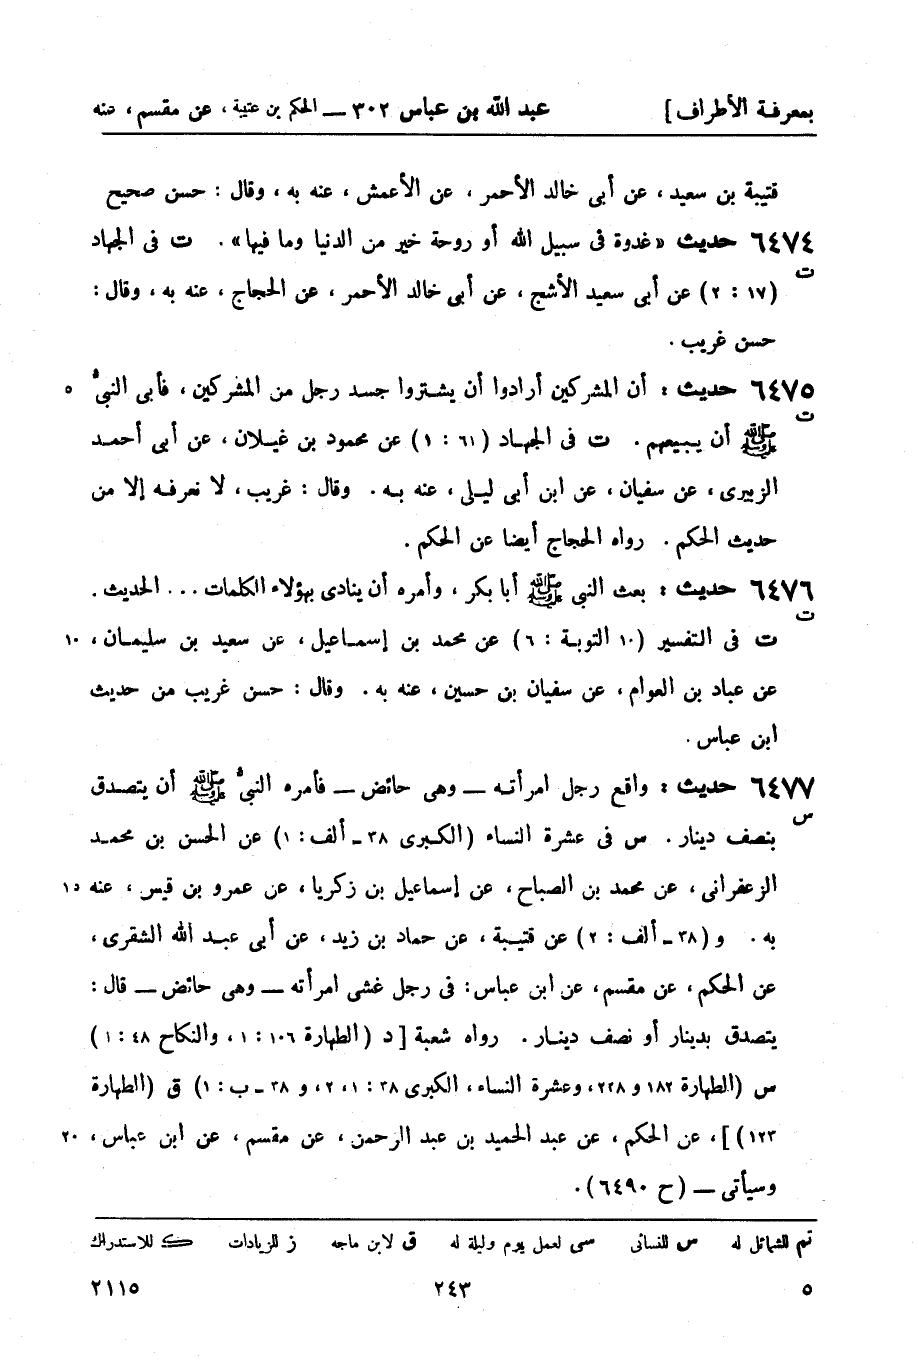 بمعرفة الأطراف] عبد الله بن عباس ٣٠٢ — الحكم بن عتيبة، عن مقسم، عنه
قتيبة بن سعيد، عن أبى خالد الأحمر، عن الأعمش، عنه به، وقال: حسن صحيح
٦٤٧٤ حديث «غدوة فى سبيل الله أو روحة خير من الدنيا وما فيها». ت فى الجهاد
ت
(١٧ : ٢) عن أبى سعيد الأشج، عن أبى خالد الأحمر، عن الحجاج، عنه به، وقال:
حسن غريب.
٦٤٧٥ حديث: أن المشركين أرادوا أن يشتروا جسد رجل من المشركين، فأبى النبىُّ ٥
ت
ﷺ أن يبيعهم. ت فى الجهاد (٦١ : ١) عن محمود بن غيلان، عن أبى أحمد
الزبيرى، عن سفيان، عن ابن أبى ليلى، عنه به. وقال: غريب، لا نعرفه إلا من
حديث الحكم. رواه الحجاج أيضا عن الحكم.
٦٤٧٦ حديث: بعث النبى ﷺ أبا بكر، وأمره أن ينادى بهؤلاء الكلمات... الحديث.
ت
ت فى التفسير (١٠ التوبة : ٦) عن محمد بن إسماعيل، عن سعيد بن سليمان، ١٠
عن عباد بن العوام، عن سفيان بن حسين، عنه به. وقال: حسن غريب من حديث
ابن عباس.
٦٤٧٧ حديث: واقع رجل امرأته — وهى حائض — فأمره النبىُّ ﷺ أن يتصدق
س
بنصف دينار. س فى عشرة النساء (الكبرى ٣٨ ـ ألف: ١) عن الحسن بن محمد
الزعفرانى، عن محمد بن الصباح، عن إسماعيل بن زكريا، عن عمرو بن قيس، عنه ١٥
به. و (٣٨ ـ ألف: ٢) عن قتيبة، عن حماد بن زيد، عن أبى عبد الله الشقرى،
عن الحكم، عن مقسم، عن ابن عباس: فى رجل غشى امرأته — وهى حائض — قال:
يتصدق بدينار أو نصف دينار. رواه شعبة [د (الطهارة ١٠٦ : ١، والنكاح ٤٨ : ١)
س (الطهارة ١٨٢ و ٢٢٨، وعشرة النساء، الكبرى ٣٨ : ١، ٢، و ٣٨ ـ ب: ١) ق (الطهارة
١٢٣)]، عن الحكم، عن عبد الحميد بن عبد الرحمن، عن مقسم، عن ابن عباس، ٢٠
وسيأتى — (ح ٦٤٩٠).
تم للشمائل له س للنسائى سى لعمل يوم وليلة له ق لابن ماجه ز للزيادات ك للاستدراك
٥ ٢٤٣ ٢١١٥